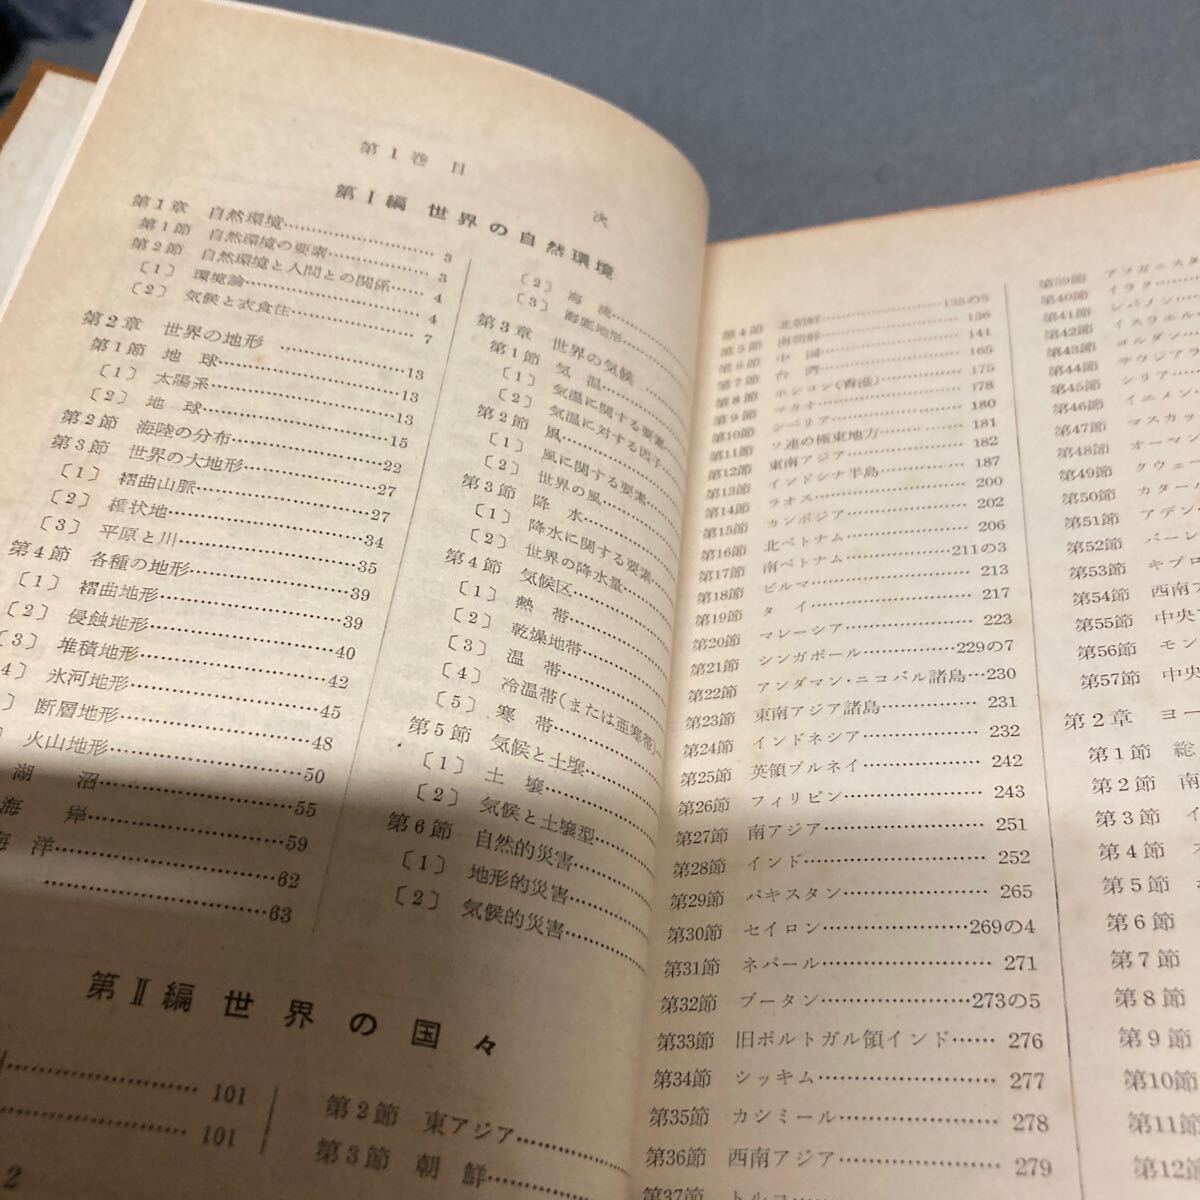 第1巻 目 次
第Ⅰ編 世界の自然環境
第1章 自然環境……3
第1節 自然環境の要素……3
第2節 自然環境と人間との関係……4
〔1〕 環境論……4
〔2〕 気候と衣食住……7
第2章 世界の地形……13
第1節 地 球……13
〔1〕 太陽系……13
〔2〕 地 球……15
第2節 海陸の分布……22
第3節 世界の大地形……27
〔1〕 褶曲山脈……27
〔2〕 楯状地……34
〔3〕 平原と川……35
第4節 各種の地形……39
〔1〕 褶曲地形……39
〔2〕 侵蝕地形……40
〔3〕 堆積地形……42
4〕 氷河地形……45
〕 断層地形……48
〕 火山地形……50
湖 沼……55
海 岸……59
海 洋……62
……63
〔2〕 海 流……
〔3〕 海底地形……
第3章 世界の気候……
第1節 気 温……
〔1〕 気温に関する要素……
〔2〕 気温に対する因子……
第2節 風……
〔1〕 風に関する要素……
〔2〕 世界の風……
第3節 降 水……
〔1〕 降水に関する要素……
〔2〕 世界の降水量……
第4節 気候区……
〔1〕 熱 帯……
〔2〕 乾燥地帯……
〔3〕 温 帯……
〔4〕 冷温帯(または亜寒帯)…
〔5〕 寒 帯……
第5節 気候と土壌……
〔1〕 土 壌……
〔2〕 気候と土壌型……
第6節 自然的災害……
〔1〕 地形的災害……
〔2〕 気候的災害……
第Ⅱ編 世界の国々
……101
……101
第2節 東アジア……
第3節 朝 鮮……
2
第4節 北朝鮮……135の5
第5節 南朝鮮……136
第6節 中 国……141
第7節 台 湾……165
第8節 ホンコン(香港)……175
第9節 マカオ……178
第10節 シベリア……180
第11節 ソ連の極東地方……181
第12節 東南アジア……182
第13節 インドシナ半島……187
第14節 ラオス……200
第15節 カンボジア……202
第16節 北ベトナム……206
第17節 南ベトナム……211の3
第18節 ビルマ……213
第19節 タ イ……217
第20節 マレーシア……223
第21節 シンガポール……229の7
第22節 アンダマン・ニコバル諸島…230
第23節 東南アジア諸島……231
第24節 インドネシア……232
第25節 英領ブルネイ……242
第26節 フィリピン……243
第27節 南アジア……251
第28節 インド……252
第29節 パキスタン……265
第30節 セイロン……269の4
第31節 ネパール……271
第32節 ブータン……273の5
第33節 旧ポルトガル領インド……276
第34節 シッキム……277
第35節 カシミール……278
第36節 西南アジア……279
第37節 トルコ……
第39節 アフガニスタ
第40節 イラク……
第41節 レバノン……
第42節 イスラエル…
第43節 ヨルダン……
第44節 サウジアラ
第45節 シリア……
第46節 イエメン
第47節 マスカッ
第48節 オーマン
第49節 クウェー
第50節 カタール
第51節 アデン
第52節 バーレ
第53節 キプロ
第54節 西南ア
第55節 中央ア
第56節 モン
第57節 中央
第2章 ヨー
第1節 総
第2節 南
第3節 イ
第4節
第5節
第6節
第7節
第8節
第9節
第10節
第11節
第12節